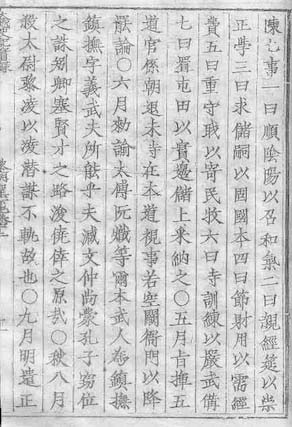 陳七事一曰順陰陽以召和氣二曰親經筵以崇
正學三曰求儲嗣以固國本四曰節財用以需經
費五曰重守職以寄民牧六曰時訓練以嚴武備
七曰置屯田以實邊儲上采納之〇五月旨揮五
道官係朝退來寺在本道視事若空闕衙門以降
論〇六月勅諭太傅阮熾等爾本武人忝鎮撫
鎮撫字義武夫所能乎夫臧文仲尚蒙孔子竊位
之誅矧卿塞賢才之路浚僥倖之原哉〇秋八月
殺太尉黎凌以凌潛謀不軌故也〇九月明遣正